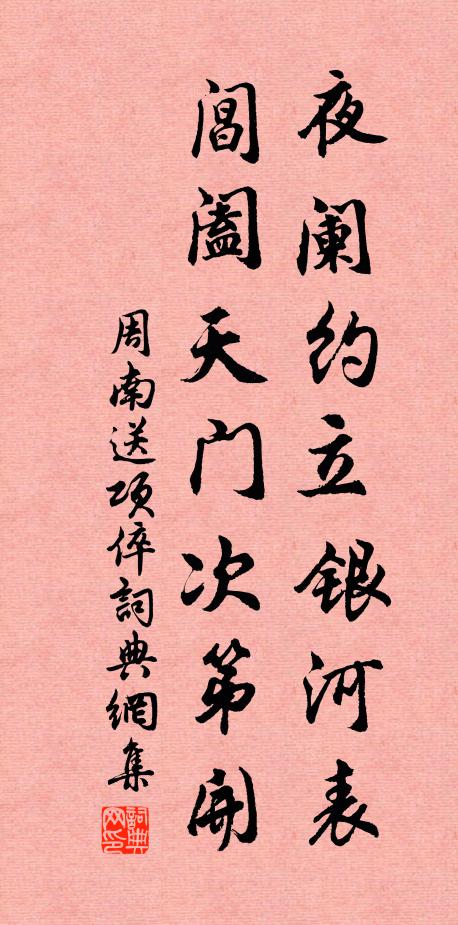 夜阑约立银河表
阊阖天门次第开
周南送项倅詞典網集
詞典网印